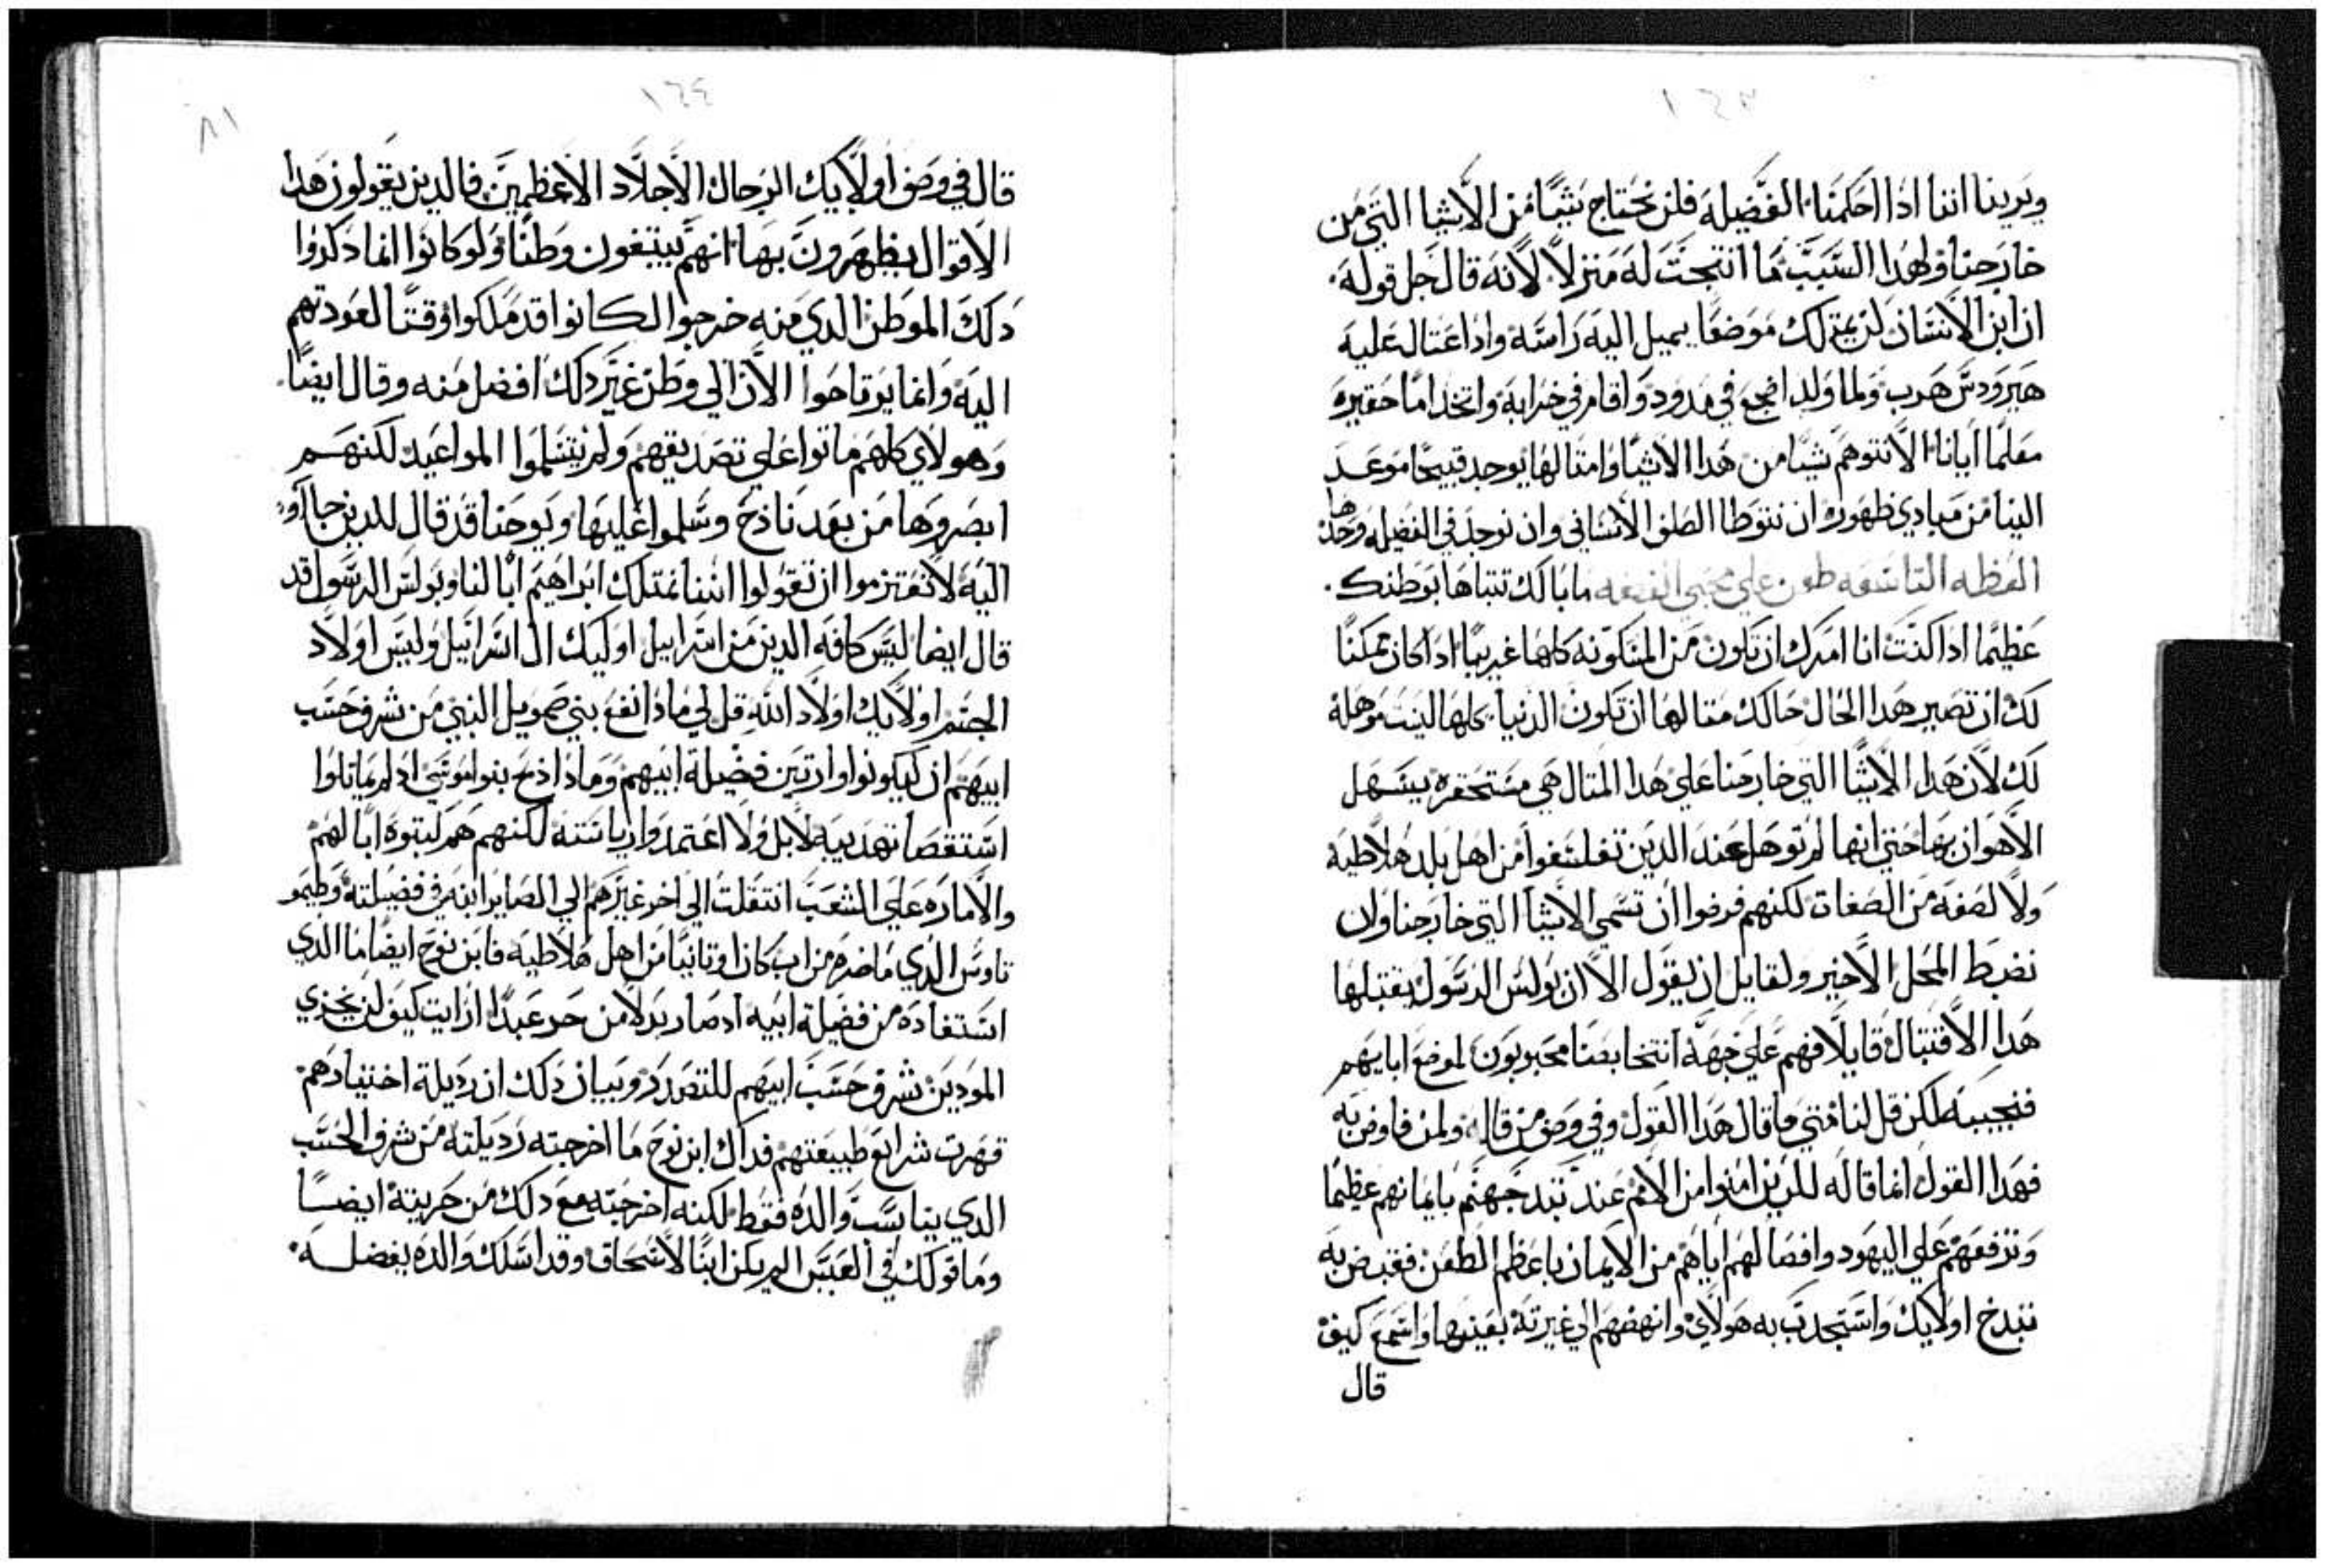 ١٦٣
ويرينا اننا ادا احكمنا الفضيله فلن نحتاج شيًا من الاشيا التي من
خارجنا ولهدا السبب ما انتجت له منزلاً لانه قال جل قوله
ان ابن الانسان لن يمتلك موضعًا يميل اليه راسه وادا اغتال عليه
هيرودس هرب ولما ولد اضجع في مدود واقام في خرابة واتخد امًا حقيره
معلمًا ايانا الا نتوهم شيًا من هدا الاشيا وامثالها يوجد قبيحًا موعد
الينا من مبادي ظهوره ان نتوطا الصلف الانساني وان نوجد في الفضيله وحدها
العظه التاسعه طعن علي محبي الفضه ما بالك تتباها بوطنك
عظيمًا ادا كنت انا امرك ان تكون من المسكونه كلها غريبًا ادا كان ممكنًا
لك ان تصير هدا الحال حالك متالها ان تكون الدنيا كلها ليست موهله
لك لان هدا الاشيا التي خارجنا علي هدا المتال هي مستحقره يسهل
الاهوان بها حتي انها لم توهل عند الدين تفلسفوا من اهل بلد هلاطيه
ولا لصفه من الصفات لكنهم فرفوا ان تسمي الاشيا التي خارجنا وان
نضبط المحل الاخير ولقايل ان يقول الا ان بولس الرسول يقتبلها
هدا الاقتبال قايلاً فهم علي جهة انتخابصنا محبوبون لموضع ابايهم
فنجيبه لكن قل لنا متي ما قال هدا القول وفي وصف من قاله ولمن فاوض به
فهدا القول انما قاله للدين امنوا من الامم عند تبدجهتم بايمانهم عظيمًا
وترفعهم علي اليهود وافصالهم اياهم من الايمان باعظم الطعن فقبض به
تبدخ اولايك واستجدب به هولاي وانهضهم الي غيرته بعينها واسمع كيف
قال
١٦٤
٨١
قال في وصف اولايك الرجال الاجلاد الاعظمين فالدين يقولون هدا
الاقوال يظهرون بها انهم يبتغون وطنًا ولو كانوا انما دكروا
دلك الموطن الدي منه خرجوا لكانوا قد ملكوا وقتًا لعودتهم
اليه وانما يرتاحوا الان الي وطن غير دلك افضل منه وقال ايضًا
وهولاي كلهم ماتوا علي تصديقهم ولم يتسلموا المواعيد لكنهم
ابصروها من بعد نادخ وسلموا عليها ويوحنا قد قال للدين جااو
اليه لا تعتزموا ان تقولوا اننا نمتلك ابراهيم ابًا لنا وبولس الرسول قد
قال ايضا ليس كافه الدين من اسراييل اوليك ال اسراييل وليس اولاد
الجسم اولايك اولاد الله قل لي مادا نفع بني صمويل النبي من شرف حسب
ابيهم ان لم يكونوا وارتين فضيلة ابيهم ومادا ربح بنوا موسي ادا لم يماتلوا
استقصا تهديبه لا بل ولا اعتمدوا رياسته لكنهم هم كتبوه ابًا لهم
والاماره علي الشعب انتقلت الي اخر غيرهم الي الصاير ابنه في فضيلته وطيمو
تاوس الدي ما ضره من اب كان اوتانيًا من اهل هلاطيه فابن نوح ايضًا ما الدي
استفاده من فضيلة ابيه اد صار بدلاً من حر عبدًا ارايت كيف لن يجزي
الموديين شرف حسب ابيهم للتصدر وبيان دلك ان رديلة اختيارهم
قهرت شرايع طبيعتهم فداك ابن نوح ما اخرجته رديلته من شرف الحسب
الدي يناسب والده فقط لكنه اخرجته مع دلك من حريتة ايضًا
وما قولك في العيس الم يكن ابنًا لاسحاق وقد اسلك والده بفضله